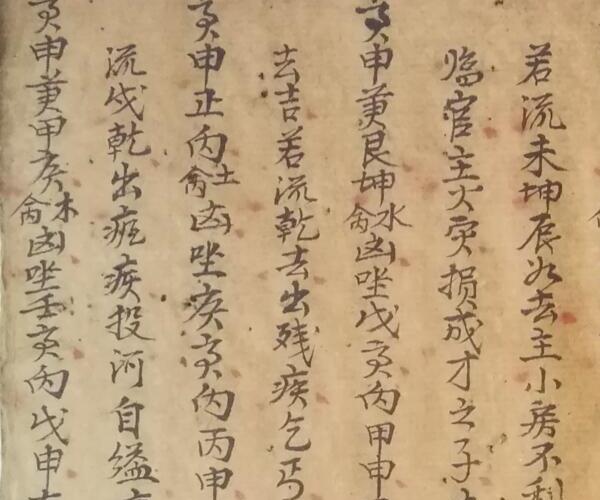 若流未坤辰水去主小房不利
临官主火灾损成才之子
亥申兼艮坤水禽凶坐戊亥丙甲申
去吉若流乾去出残疾乞丐
亥申正丙土禽凶坐癸亥内丙申
流戌乾出疯疾投河自缢
亥申兼甲庚木禽凶坐壬亥丙戊申